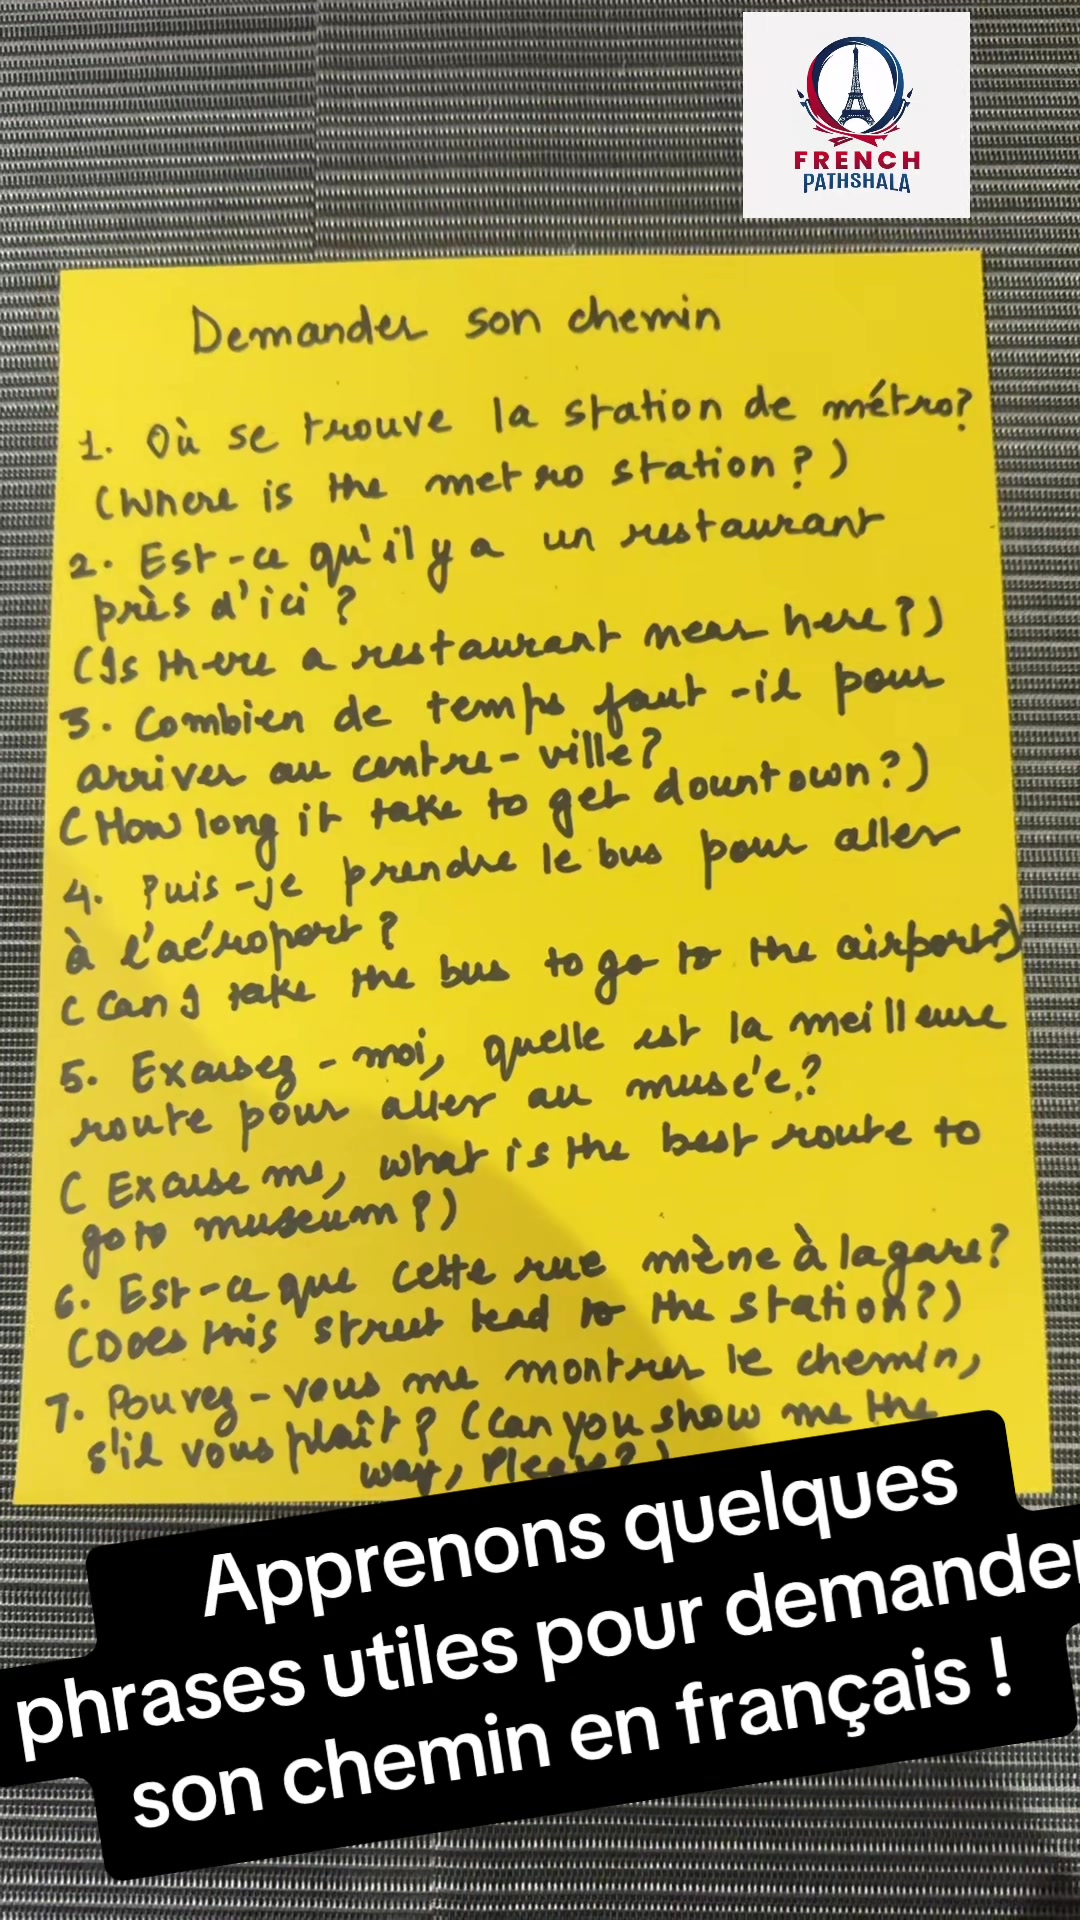 FRENCH
PATHSHALA
Demander son chemin
1. Où se trouve la station de métro?
(Where is the metro station?)
2. Est-ce qu'il y a un restaurant
près d'ici?
(Is there a restaurant near here?)
3. Combien de temps faut-il pour
arriver au centre-ville?
(How long it take to get downtown?)
4. Puis-je prendre le bus pour aller
à l'aéroport?
(Can I take the bus to go to the airport?)
5. Excusez-moi, quelle est la meilleure
route pour aller au musée?
(Excuse me, what is the best route to
go to museum?)
6. Est-ce que cette rue mène à la gare?
(Does this street lead to the station?)
7. Pouvez-vous me montrer le chemin,
s'il vous plaît? (Can you show me the
way, Please?)
Apprenons quelques
phrases utiles pour demander
son chemin en français !